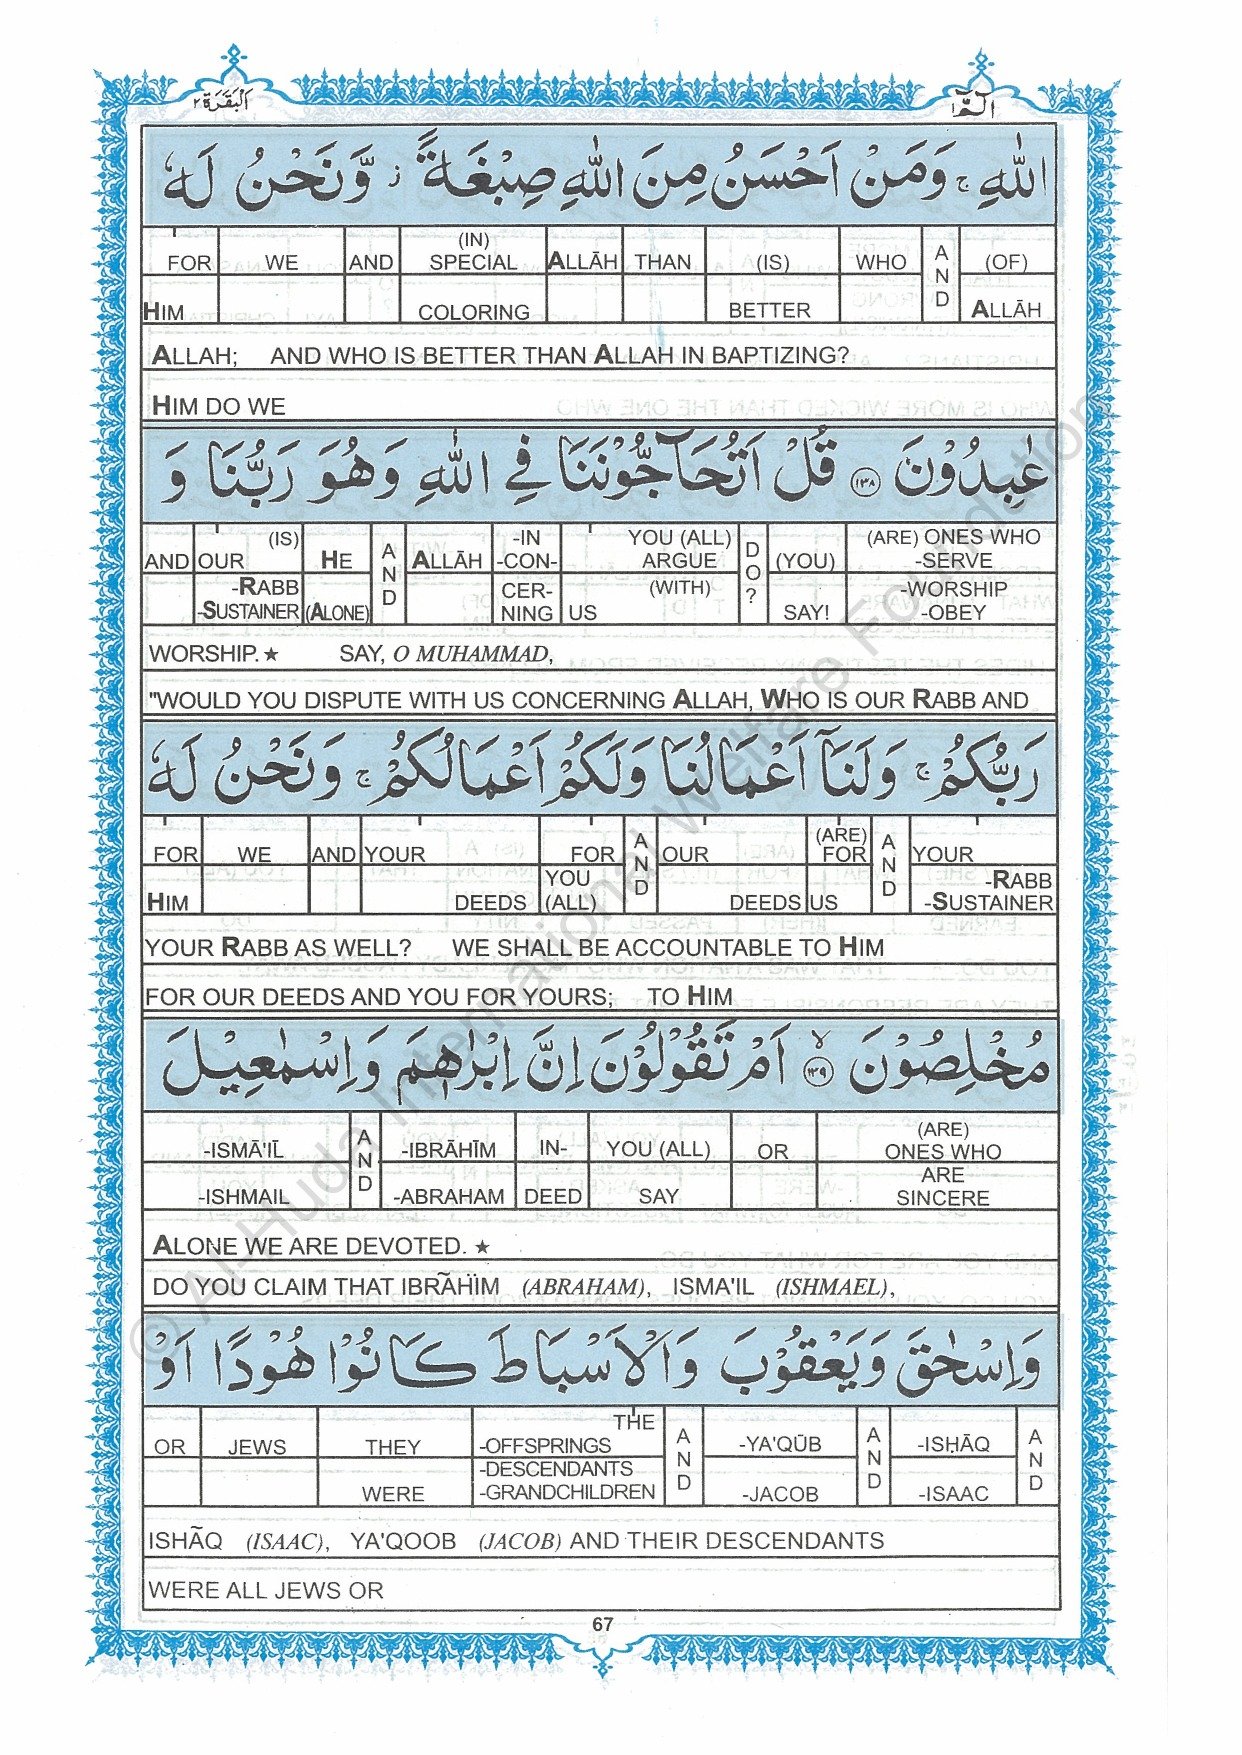 الٓمّٓ ١
اَلْبَقَرَة ٢
اللّٰهِ ۚ وَمَنْ اَحْسَنُ مِنَ اللّٰهِ صِبْغَةً ۫ وَّنَحْنُ لَهٗ
FOR WE AND (IN) SPECIAL ALLĀH THAN (IS) WHO AND (OF)
HIM COLORING BETTER ALLĀH
ALLAH; AND WHO IS BETTER THAN ALLAH IN BAPTIZING?
HIM DO WE
عٰبِدُوْنَ ﴿١٣٨﴾ قُلْ اَتُحَآجُّوْنَنَا فِي اللّٰهِ وَهُوَ رَبُّنَا وَ
AND OUR (IS) HE AND ALLĀH -IN -CON- YOU (ALL) ARGUE DO? (YOU) (ARE) ONES WHO -SERVE
-RABB -SUSTAINER (ALONE) CER- NING US (WITH) SAY! -WORSHIP -OBEY
WORSHIP.★ SAY, O MUHAMMAD,
"WOULD YOU DISPUTE WITH US CONCERNING ALLAH, WHO IS OUR RABB AND
رَبُّكُمْ ۚ وَلَنَآ اَعْمَالُنَا وَلَكُمْ اَعْمَالُكُمْ ۚ وَنَحْنُ لَهٗ
FOR WE AND YOUR FOR AND OUR (ARE) FOR AND YOUR
HIM DEEDS YOU (ALL) DEEDS US -RABB -SUSTAINER
YOUR RABB AS WELL? WE SHALL BE ACCOUNTABLE TO HIM
FOR OUR DEEDS AND YOU FOR YOURS; TO HIM
مُخْلِصُوْنَ ﴿١٣٩﴾ ۙ اَمْ تَقُوْلُوْنَ اِنَّ اِبْرٰهٖمَ وَاِسْمٰعِيْلَ
-ISMĀ'ĪL AND -IBRĀHĪM IN- YOU (ALL) OR (ARE) ONES WHO
-ISHMAIL -ABRAHAM DEED SAY ARE SINCERE
ALONE WE ARE DEVOTED. ★
DO YOU CLAIM THAT IBRĀHIM (ABRAHAM), ISMA'IL (ISHMAEL),
وَاِسْحٰقَ وَيَعْقُوْبَ وَالْاَسْبَاطَ كَانُوْا هُوْدًا اَوْ
OR JEWS THEY THE -OFFSPRINGS AND -YA'QŪB AND -ISḤĀQ AND
WERE -DESCENDANTS -GRANDCHILDREN -JACOB -ISAAC
ISHĀQ (ISAAC), YA'QOOB (JACOB) AND THEIR DESCENDANTS
WERE ALL JEWS OR
67
© Al-Huda International Welfare Foundation